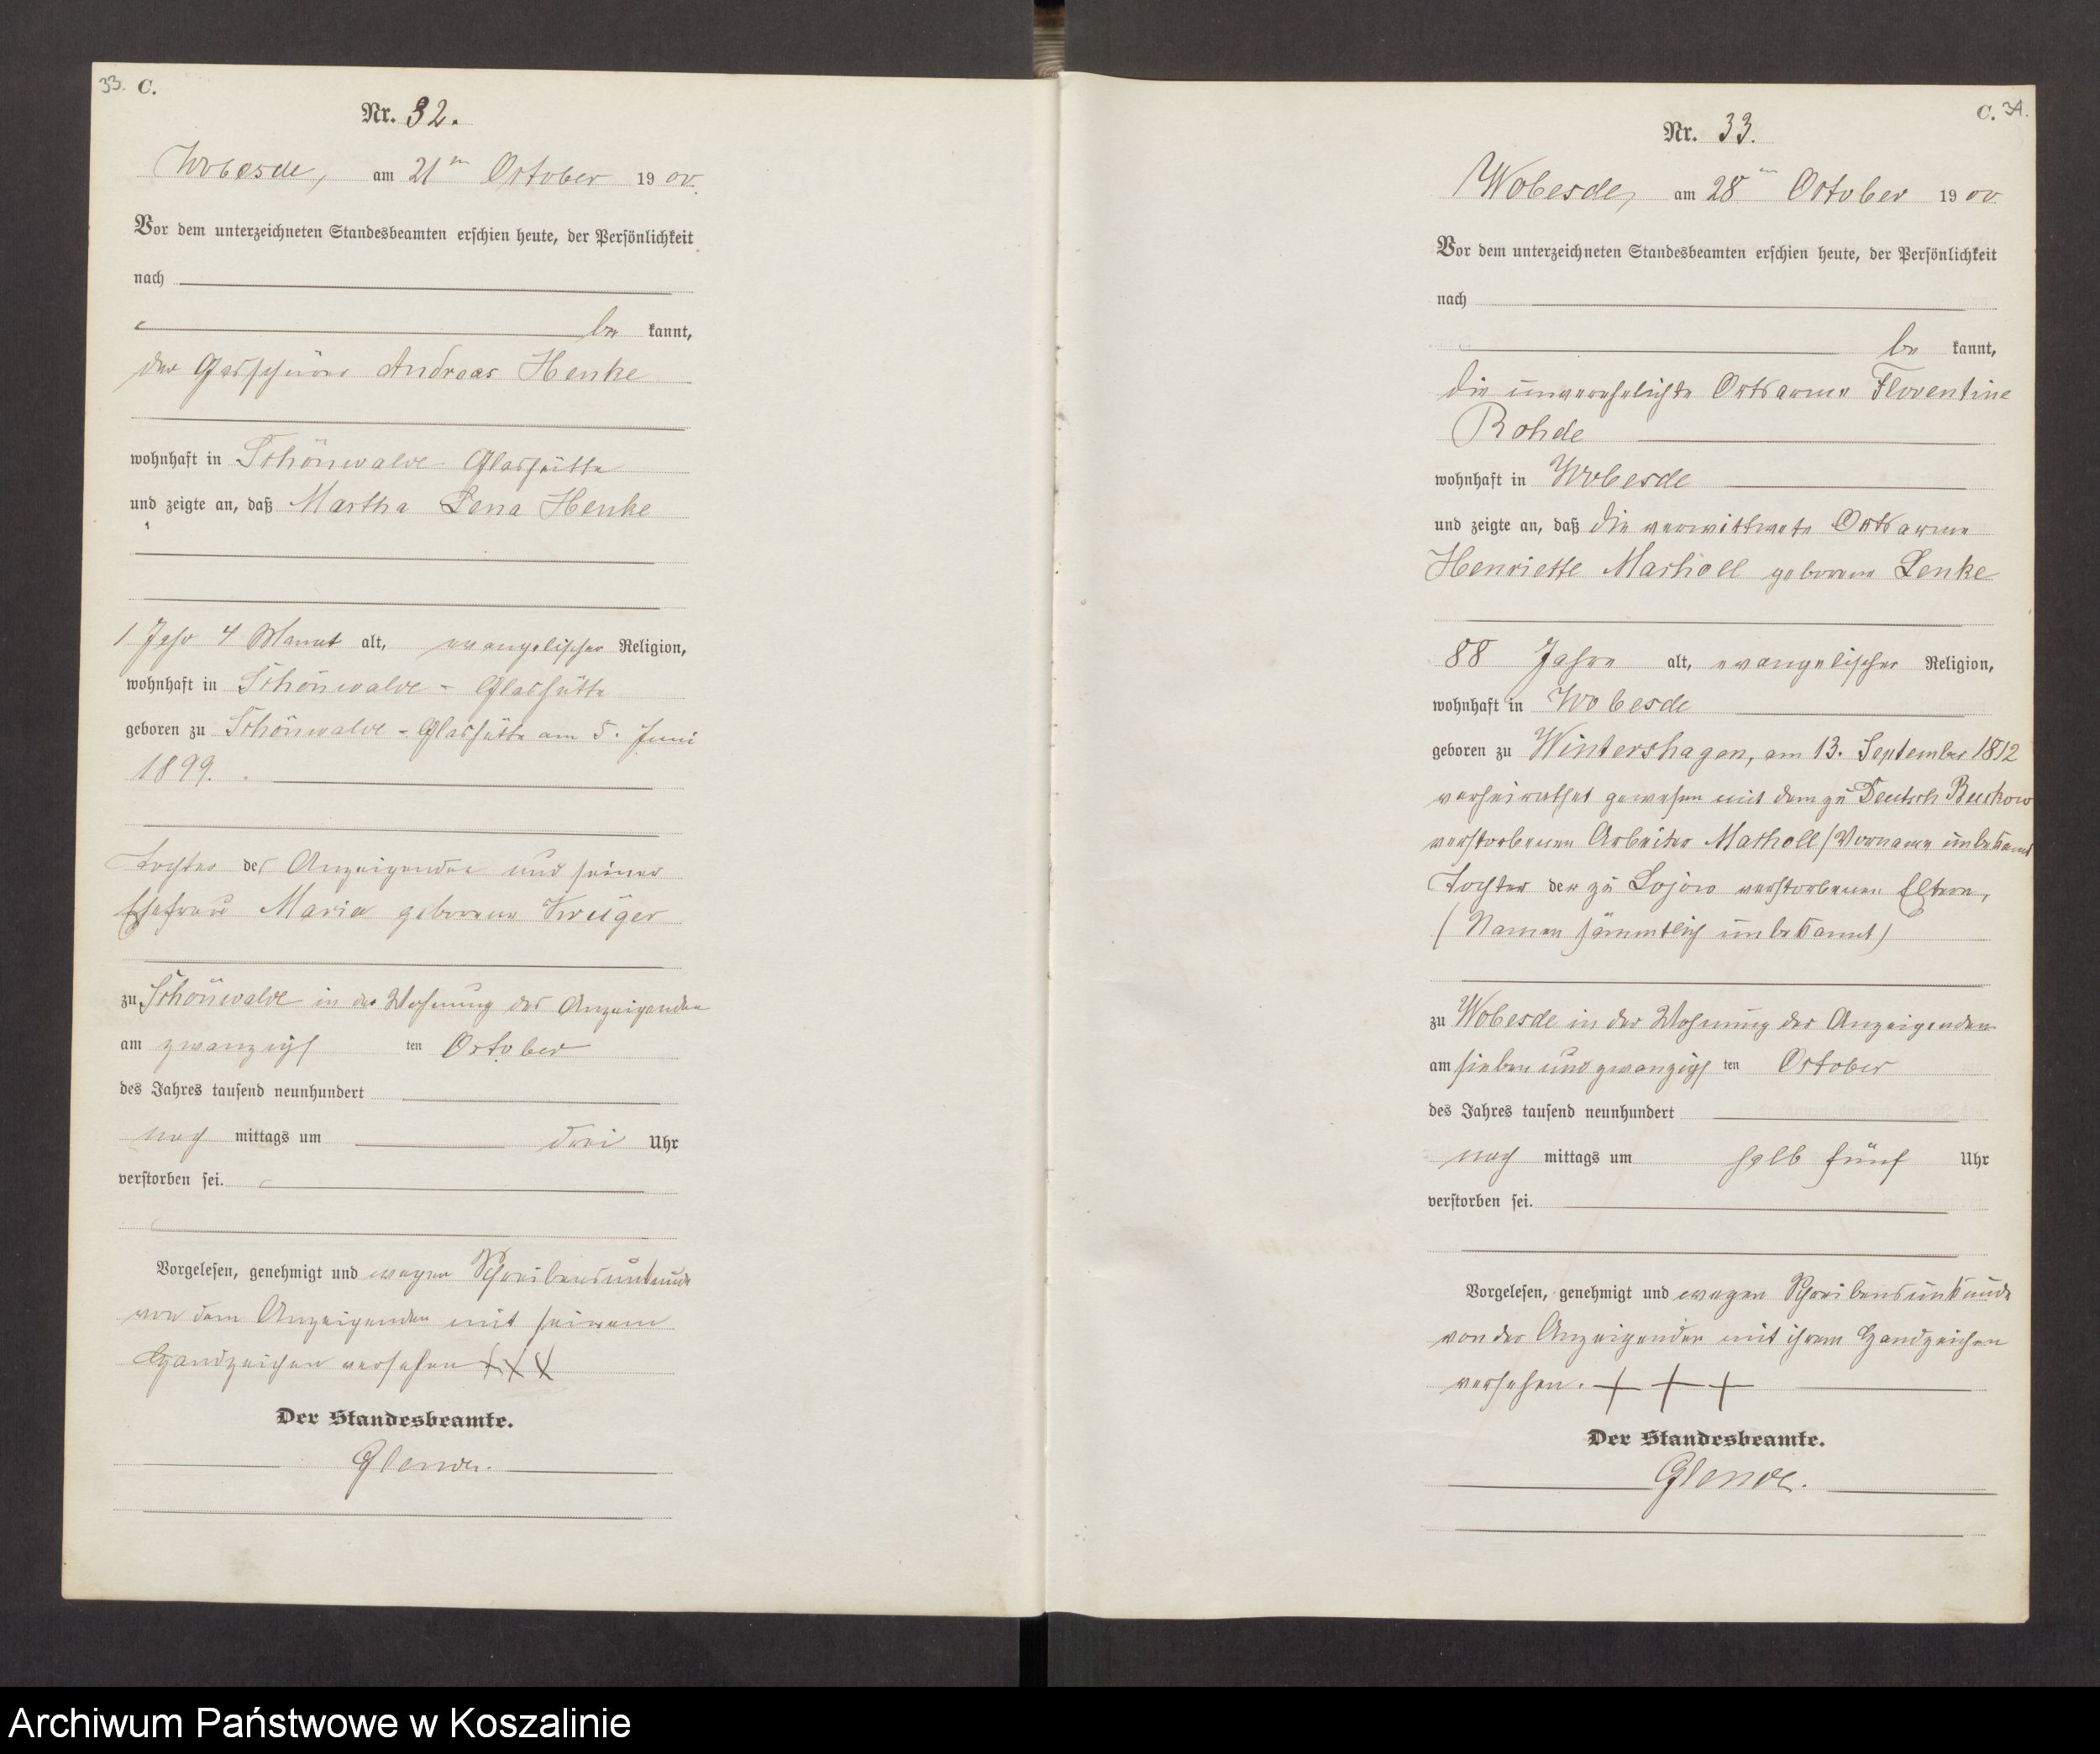 33. C.
Nr. 32.
Wobesde, am 21ten October 1900.
Vor dem unterzeichneten Standesbeamten erschien heute, der Persönlichkeit
nach
be kannt,
der Andreas Henke
wohnhaft in Schönwalde Glashütte
und zeigte an, daß Martha Lena Henke
1 Jahr 4 Monat alt, evangelischer Religion,
wohnhaft in Schönwalde - Glashütte
geboren zu Schönwalde - Glashütte am 5. Juni
1899.
Tochter des Anzeigenden und seiner
Ehefrau Maria geborene Krüger
zu Schönwalde in der Wohnung des Anzeigenden
am zwanzigs ten October
des Jahres tausend neunhundert
nach mittags um drei Uhr
verstorben sei.
Vorgelesen, genehmigt und wegen Schreibensunkunde
von dem Anzeigenden mit seinem
Handzeichen versehen + + +
Der Standesbeamte.
Glende.
C. 34.
Nr. 33.
Wobesde, am 28ten October 1900.
Vor dem unterzeichneten Standesbeamten erschien heute, der Persönlichkeit
nach
be kannt,
die unverehelichte Ortsarme Florentine
Rohde
wohnhaft in Wobesde
und zeigte an, daß die verwittwete Ortsarme
Henriette geborene Lenke
88 Jahre alt, evangelischer Religion,
wohnhaft in Wobesde
geboren zu Wintershagen, am 13. September 1812
verheirathet gewesen mit dem zu Deutsch Buckow
verstorbenen Arbeiter (Vorname unbekannt
Tochter der zu Lojow verstorbenen Eltern,
(Namen sämmtlich unbekannt)
zu Wobesde in der Wohnung der Anzeigenden
am sieben und zwanzigs ten October
des Jahres tausend neunhundert
nach mittags um halb fünf Uhr
verstorben sei.
Vorgelesen, genehmigt und wegen Schreibensunkunde
von der Anzeigenden mit ihrem Handzeichen
versehen. + + +
Der Standesbeamte.
Glende.
Archiwum Państwowe w Koszalinie